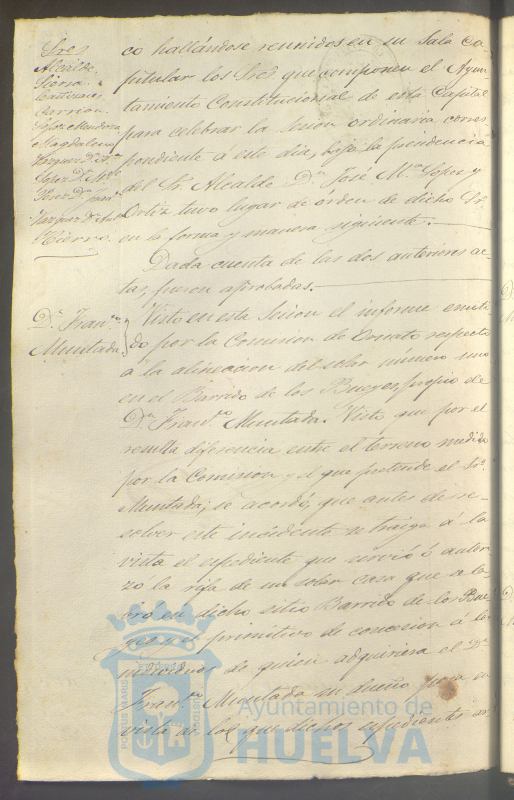 Sres
Alcalde
Sierra
Carrion
Lopez Mendoza
Magdalena
Vazquez Dn
Lopez Dn
Perez Dn Franco
Vazquez Dn Anto
Hierro
co hallándose reunidos en su Sala Ca-
pitular los Sres que componen el Ayun-
tamiento Constitucional de esta Capital
para celebrar la sesion ordinaria corres-
pondiente á este dia, bajo la presidencia
del Sr. Alcalde Dn José Ma Lopez y
Ortiz tuvo lugar de orden de dicho Sr.
en la forma y manera siguiente.
Dada cuenta de las dos anteriores ac-
tas, fueron aprobadas.
Dn Franco
Muntada
Visto en esta sesion el informe emiti-
do por la Comision de Ornato respecto
á la alineacion del solar numero uno
en el Barrido de los Bueyes, propio de
Dn Franco Muntada. Visto que por el
resulta diferencia entre el terreno medido
por la Comision y el que pretende el Sr.
Muntada; se acordó, que antes de re-
solver este incidente se traiga á la
vista el espediente que sirvió ó autori-
zó la rifa de un solar casa que se la-
bró en dicho sitio Barrido de los Bue-
yes y el primitivo de concesion á los
individuos de quien adquiriera el Dn
Franco Muntada su dueño para en
vista de los que dichos espedientes ar
PORTUS MARIS
CUSTODIA
Ayuntamiento de
HUELVA